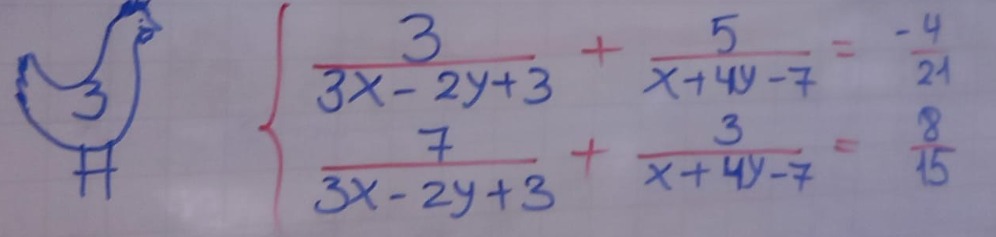 3
3/(3x-2y+3) + 5/(x+4y-7) = -4/21
7/(3x-2y+3) + 3/(x+4y-7) = 8/15